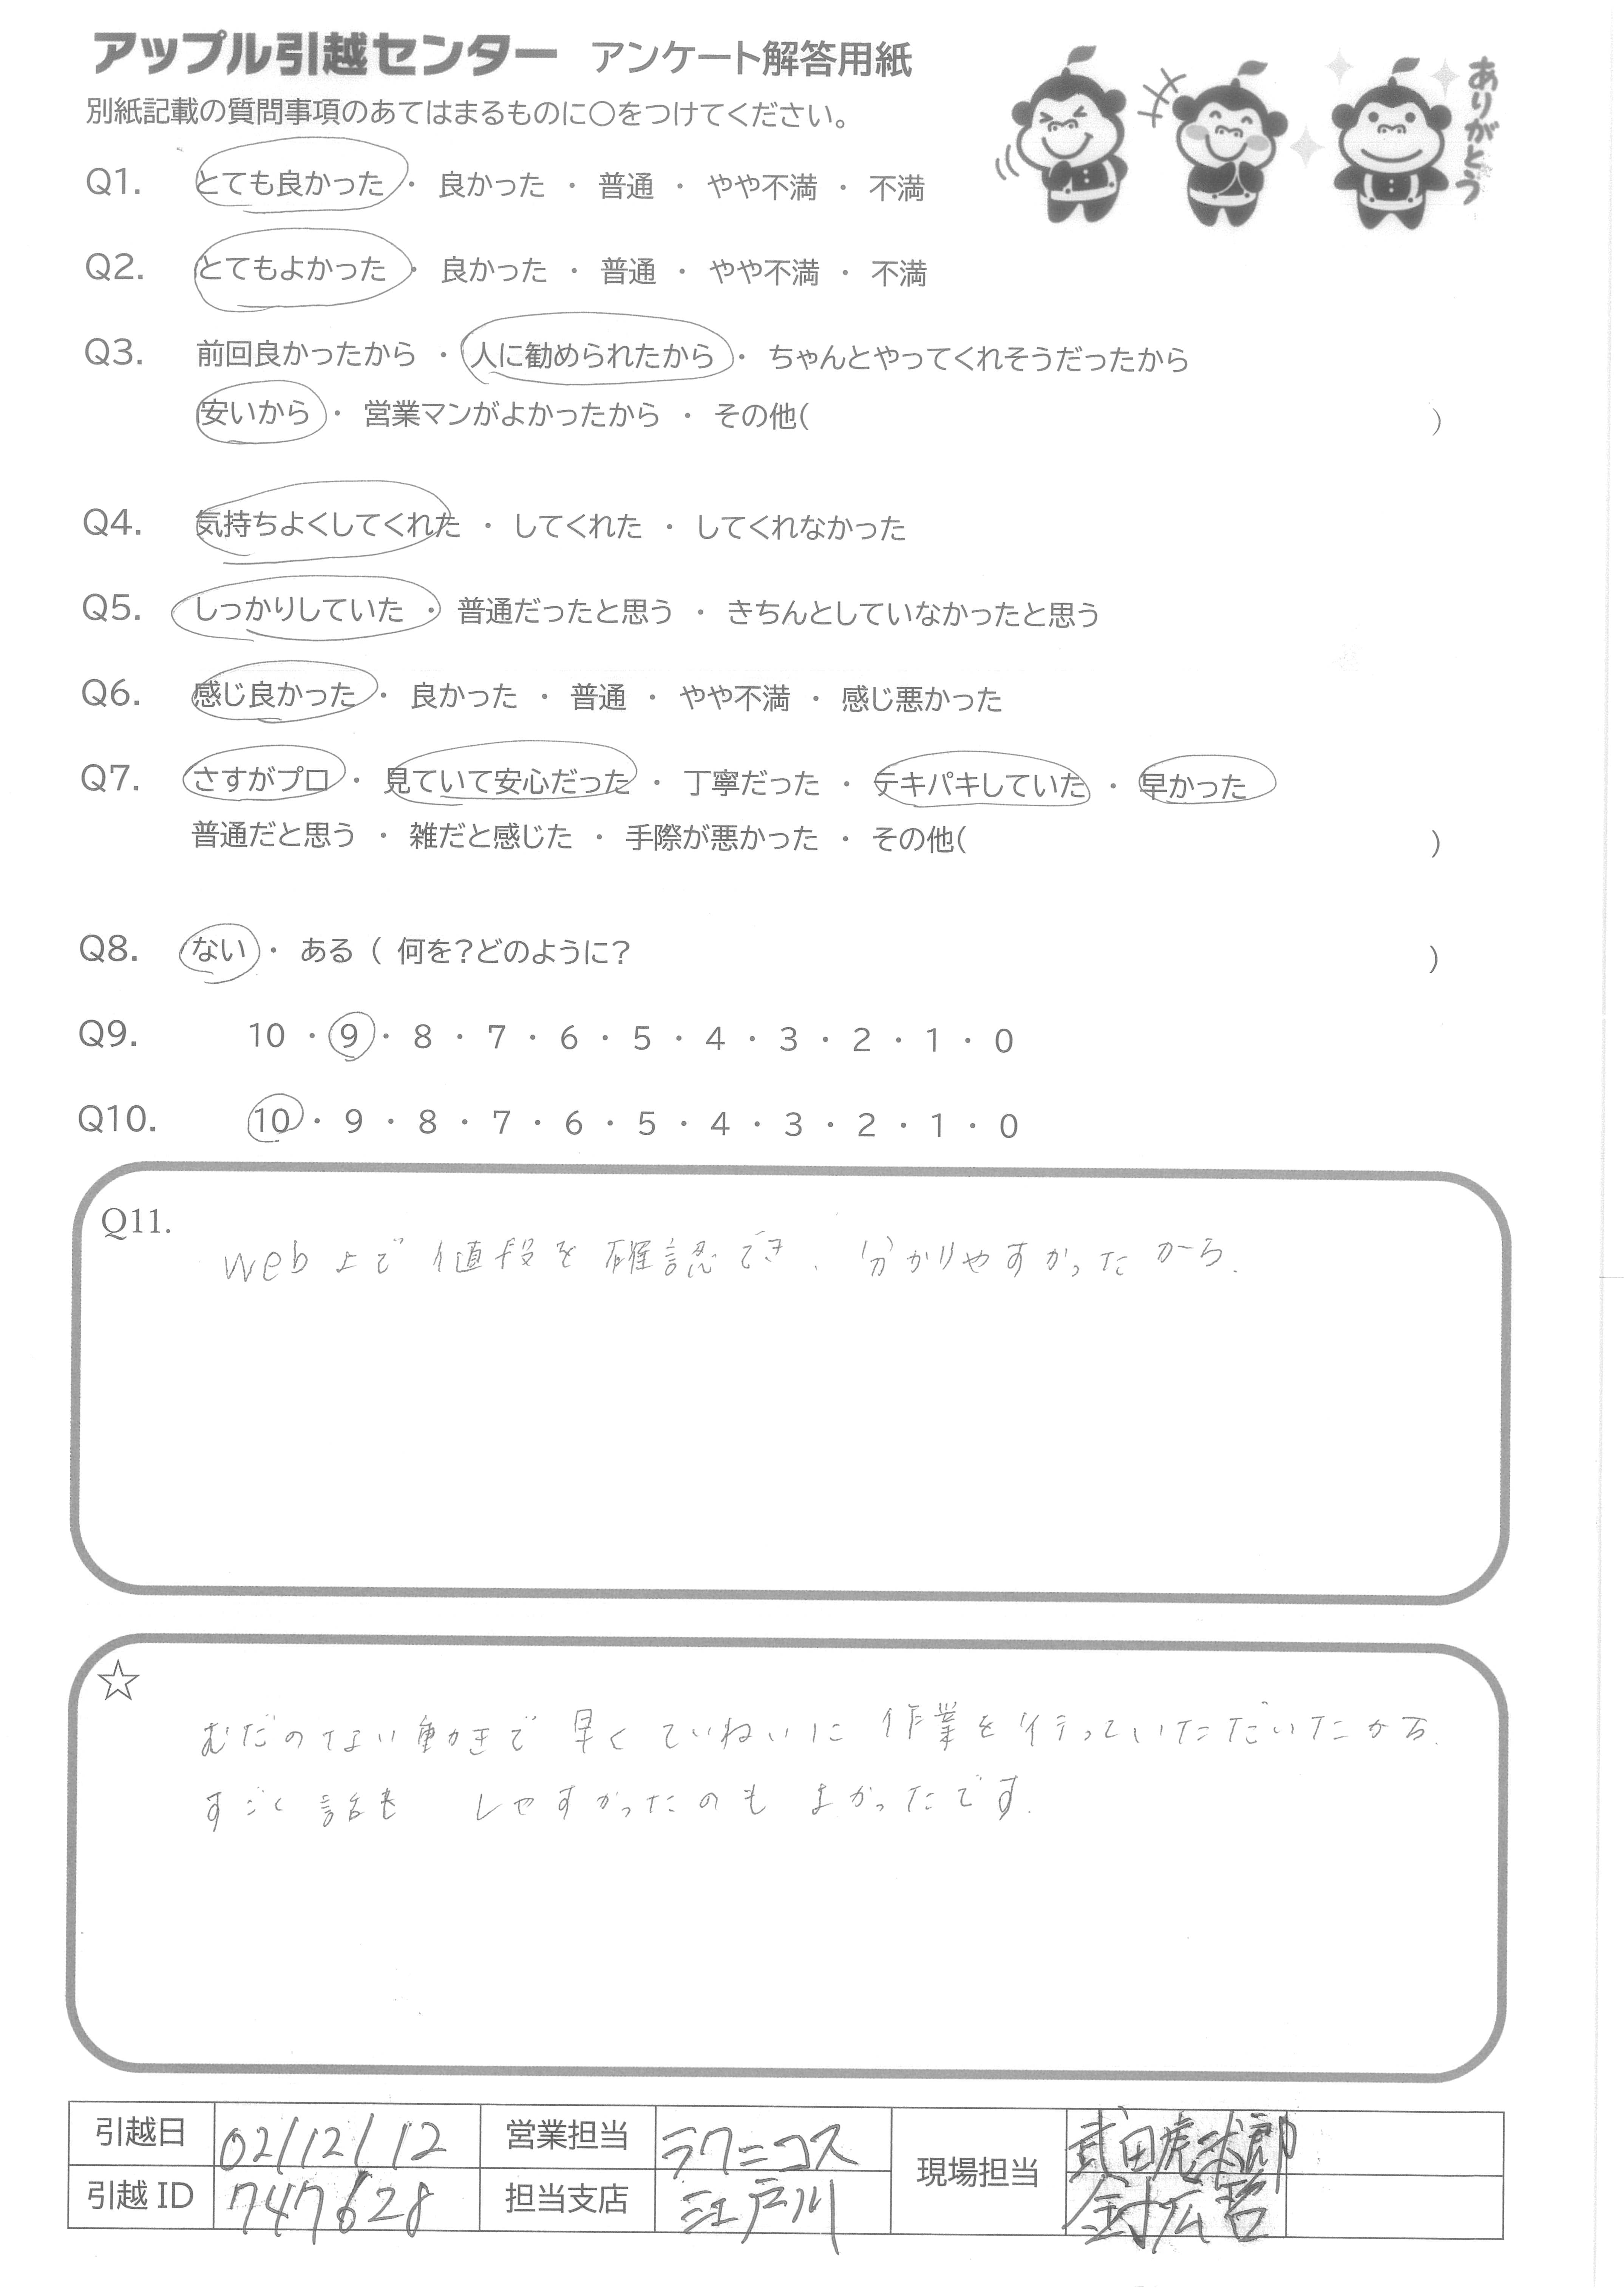 アップル引越センター アンケート解答用紙
ありがとう
別紙記載の質問事項のあてはまるものに○をつけてください。
Q1. とても良かった ・ 良かった ・ 普通 ・ やや不満 ・ 不満
Q2. とてもよかった ・ 良かった ・ 普通 ・ やや不満 ・ 不満
Q3. 前回良かったから ・ 人に勧められたから ・ ちゃんとやってくれそうだったから
安いから ・ 営業マンがよかったから ・ その他( )
Q4. 気持ちよくしてくれた ・ してくれた ・ してくれなかった
Q5. しっかりしていた ・ 普通だったと思う ・ きちんとしていなかったと思う
Q6. 感じ良かった ・ 良かった ・ 普通 ・ やや不満 ・ 感じ悪かった
Q7. さすがプロ ・ 見ていて安心だった ・ 丁寧だった ・ テキパキしていた ・ 早かった
普通だと思う ・ 雑だと感じた ・ 手際が悪かった ・ その他( )
Q8. ない ・ ある ( 何を?どのように? )
Q9. 10 ・ 9 ・ 8 ・ 7 ・ 6 ・ 5 ・ 4 ・ 3 ・ 2 ・ 1 ・ 0
Q10. 10 ・ 9 ・ 8 ・ 7 ・ 6 ・ 5 ・ 4 ・ 3 ・ 2 ・ 1 ・ 0
Q11.
web上で値段を確認でき、分かりやすかったから.
☆
むだのない動きで早くていねいに作業を行っていただいたから.
すごく話もしやすかったのもよかったです.
引越日 02/12/12 営業担当 ラクニコス 現場担当 武田虎太郎
引越 ID 747628 担当支店 江戸川